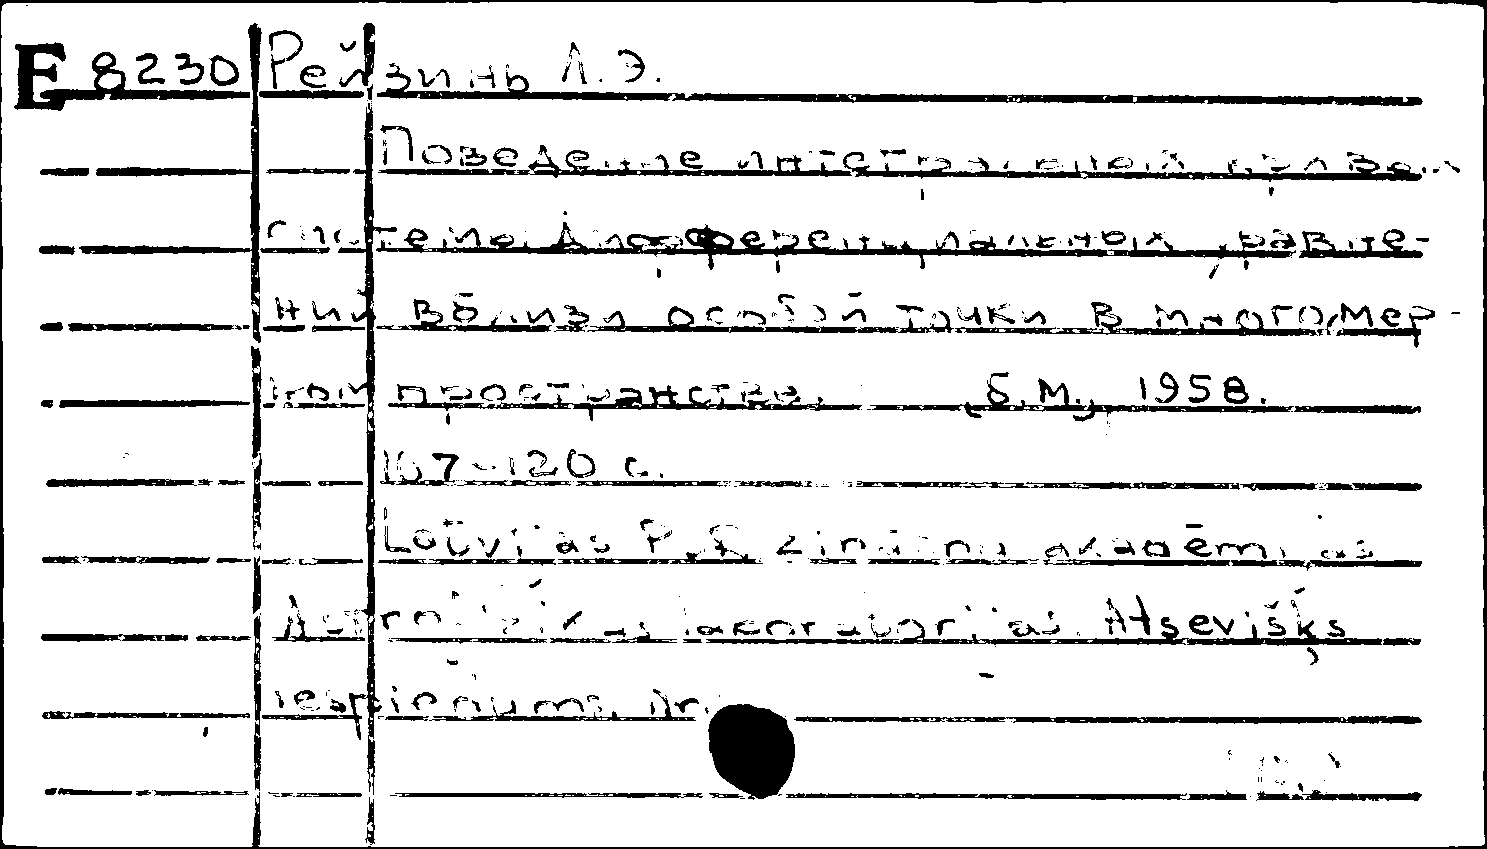 E 8230 Рейзинь Л. Э.
Поведение интегральных кривых
системы дифференциальных уравне-
ний вблизи особой точки в многомер-
ном пространстве. Б.М., 1958.
107-120 с.
Latvijas P.S.R. zinātņu akadēmijas
Astrofizikas laboratorijas. Atsevišķs
iespiedums. Nr.